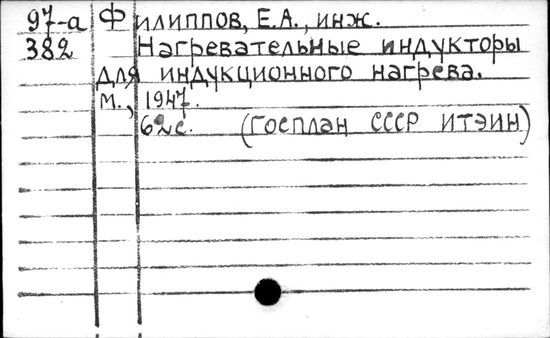 97-а Филиппов, Е.А., инж.
382 Нагревательные индукторы
для индукционного нагрева.
М., 1947.
62с. (Госплан СССР ИТЭИН)